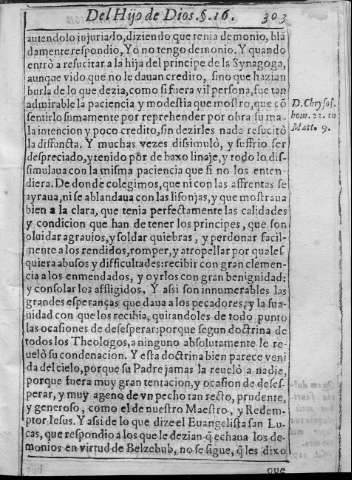 Del Hijo de Dios. §. 16. 303
auiendolo injuriado, diziendo que tenia demonio, blã
damente respondio, Yo no tengo demonio. Y quando
entrò a resucitar a la hija del principe de la Synagoga,
aunque vido que no le dauan credito, sino que hazian
burla de lo que dezia, como si fuera vil persona, fue tan
admirable la paciencia y modestia que mostro, que cõ
sentirlo sumamente por reprehender por obra su ma-
la intencion y poco credito, sin dezirles nada resucitò
la diffuncta. Y muchas vezes dissimulò, y suffrio ser
despreciado, y tenido por de baxo linaje, y todo lo dis-
simulaua con la misma paciencia que si no los enten-
diera. De donde colegimos, que ni con las affrentas se
ayraua, ni se ablandaua con las lisonjas, y que mostraua
bien a la clara, que tenia perfectamente las calidades
y condicion que han de tener los principes, que son
oluidar agrauios, y soldar quiebras, y perdonar facil-
mente a los rendidos, romper, y atropellar por quales
quiera abusos y difficultades: recibir con gran clemen-
cia a los enmendados, y oyrlos con gran benignidad:
y consolar los affligidos. Y assi son innumerables las
grandes esperanças que daua a los pecadores, y la sua-
uidad con que los recibia, quitandoles de todo punto
las ocasiones de desesperar: porque segun doctrina de
todos los Theologos, a ninguno absolutamente le re-
uelò su condenacion. Y esta doctrina bien parece veni
da del cielo, porque su Padre jamas la reuelò a nadie,
porque fuera muy gran tentacion, y ocasion de deses-
perar, y muy ageno de vn pecho tan recto, prudente,
y generoso, como el de nuestro Maestro, y Redemp-
ptor Iesus. Y assi de lo que dize el Euangelista san Lu-
cas, que respondio a los que le dezian q̃ echaua los de-
monios en virtud de Belzebub, no se sigue, q̃ les dixo
que
D. Chrysos.
hom. 22. in
Matt. 9.